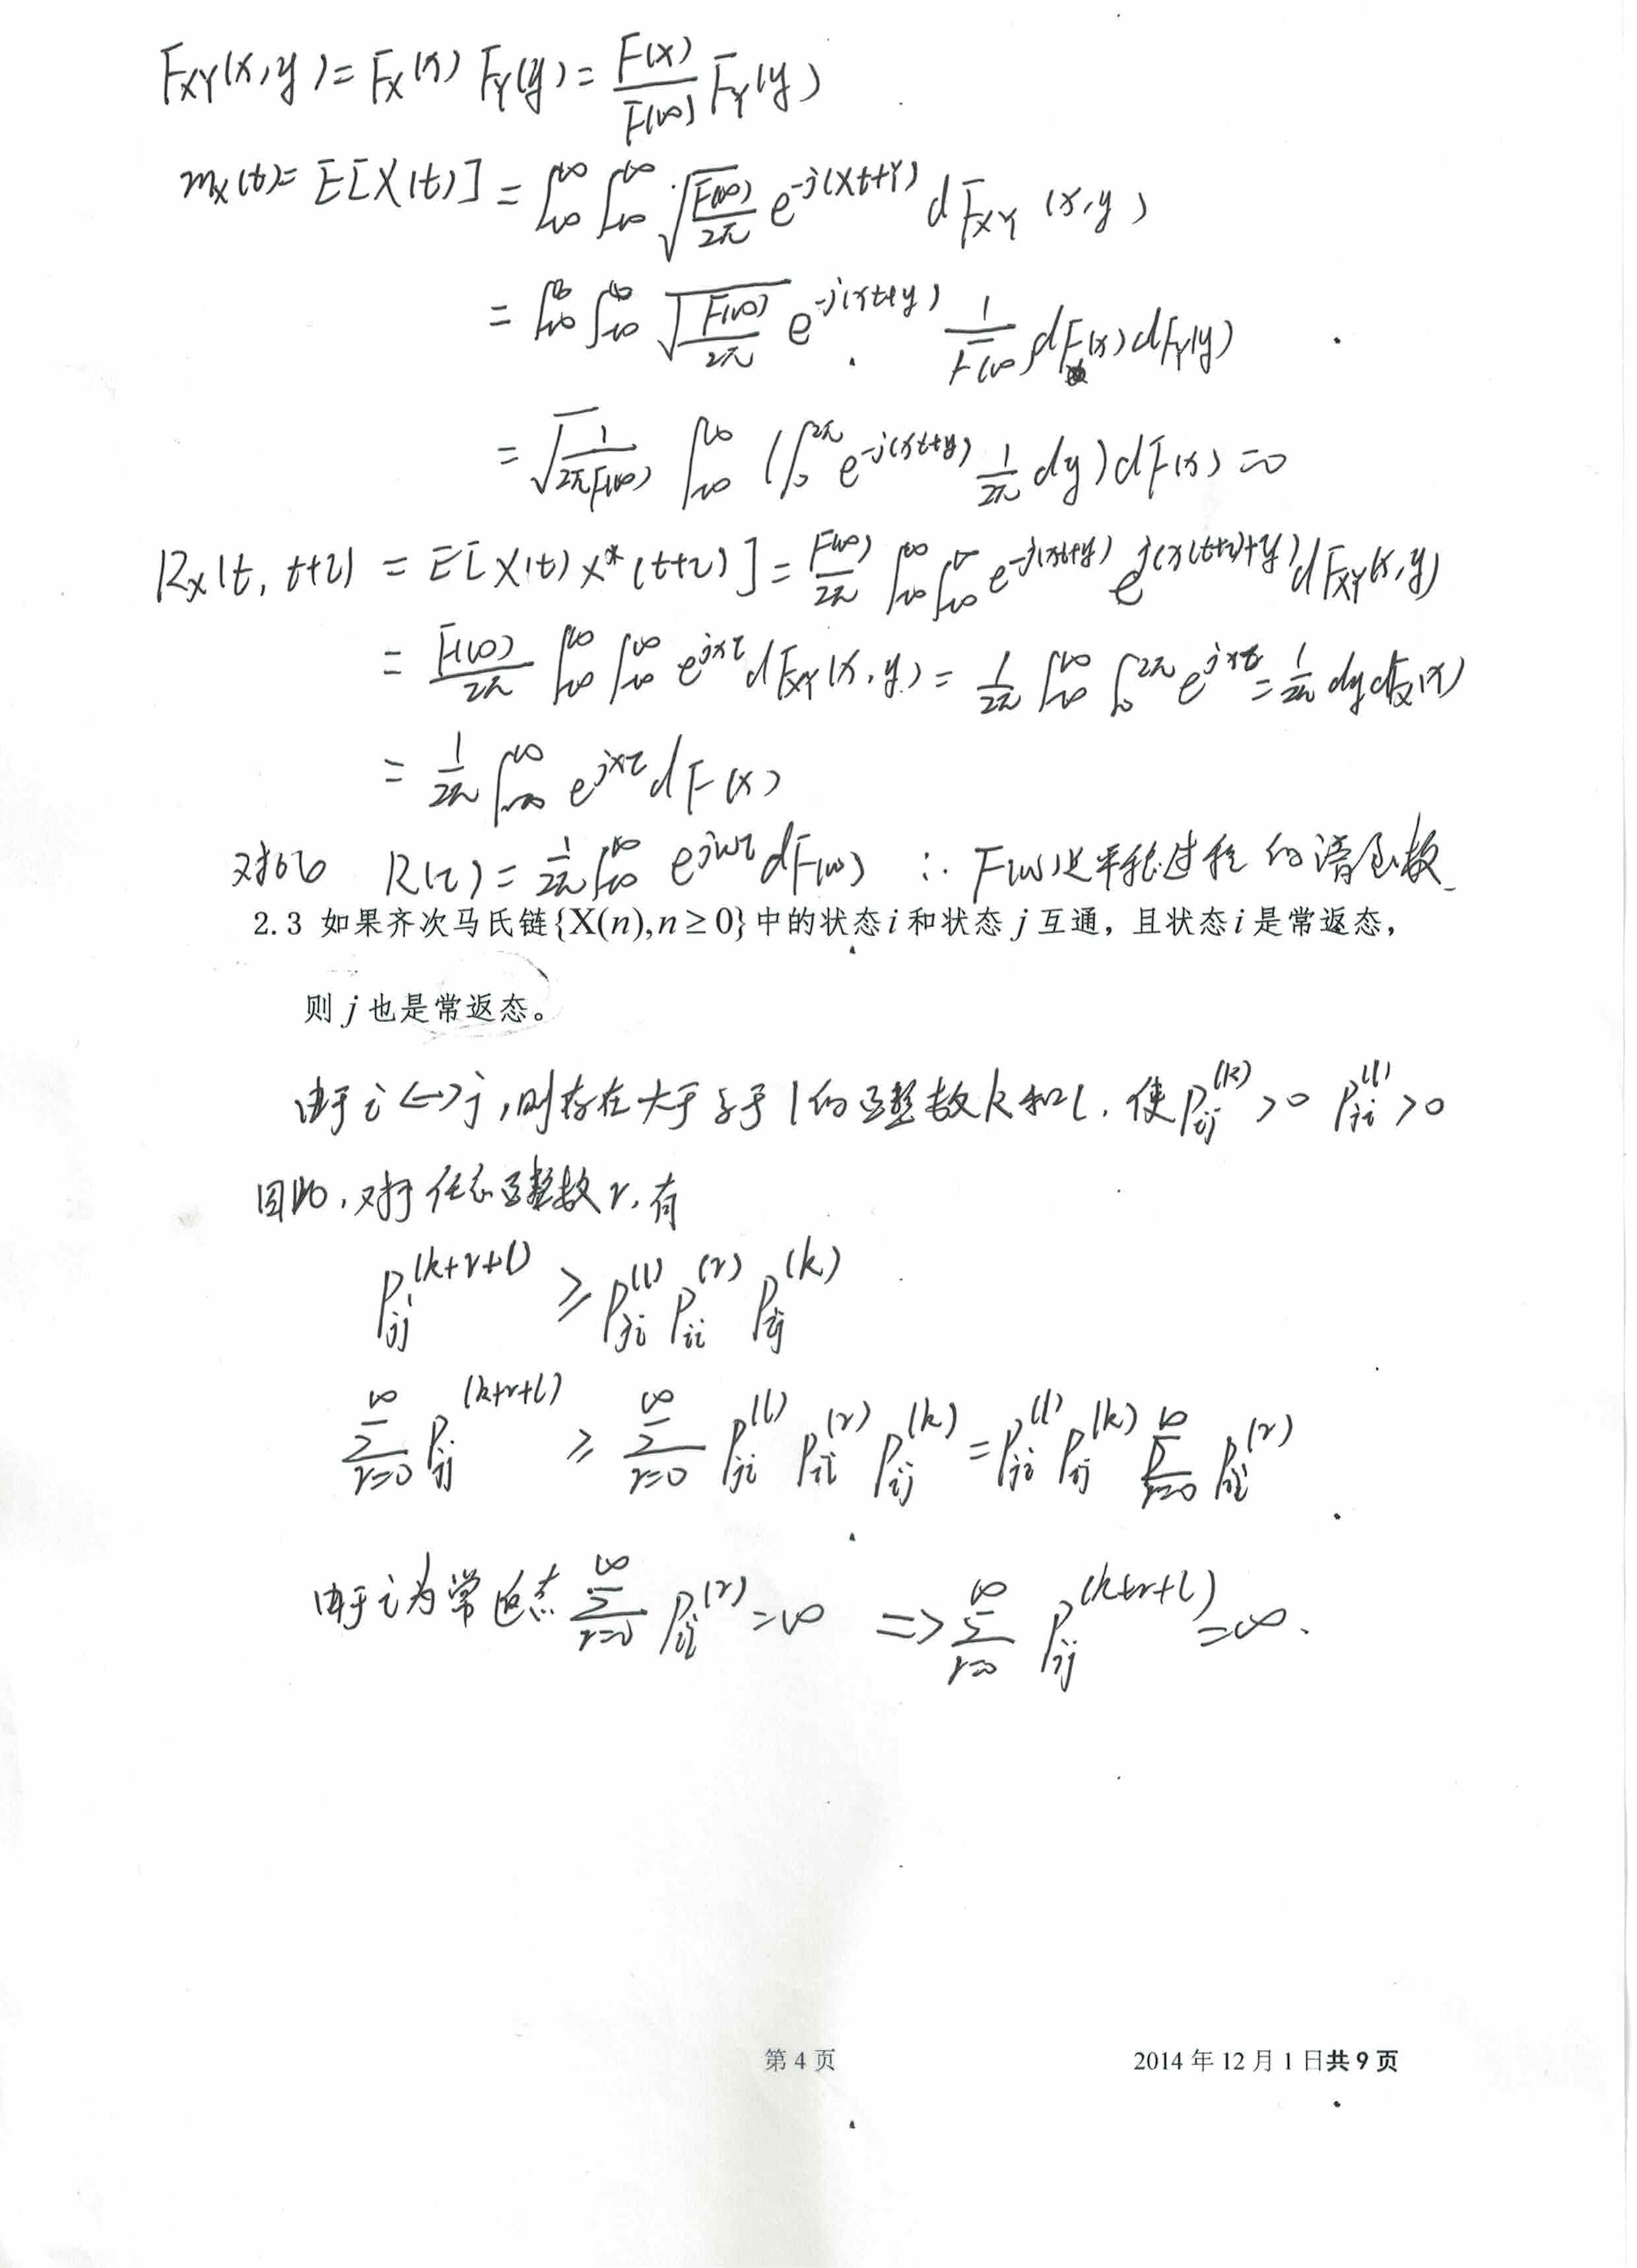 F_{XY}(x,y)=F_X(x) F_Y(y)=\frac{F(x)}{F(∞)} F_Y(y)
m_X(t)=E[X(t)]=∫_{-∞}^{∞}∫_{-∞}^{∞}\sqrt{\frac{F(∞)}{2π}} e^{-j(Xt+Y)} dF_{XY}(x,y)
=∫_{-∞}^{∞}∫_{-∞}^{∞}\sqrt{\frac{F(∞)}{2π}} e^{-j(xt+y)} \frac{1}{F(∞)} dF(x)dF_Y(y)
=\sqrt{\frac{1}{2πF(∞)}} ∫_{-∞}^{∞}(∫_0^{2π}e^{-j(xt+y)} \frac{1}{2π} dy)dF(x)=0
R_X(t, t+τ) = E[X(t)X*(t+τ)]=\frac{F(∞)}{2π} ∫_{-∞}^{∞}∫_{-∞}^{∞}e^{-j(xt+y)} e^{j(x(t+τ)+y)}dF_{XY}(x,y)
=\frac{F(∞)}{2π} ∫_{-∞}^{∞}∫_{-∞}^{∞}e^{jxτ}dF_{XY}(x,y)=\frac{1}{2π}∫_{-∞}^{∞}∫_0^{2π}e^{jxτ}=\frac{1}{2π}dydF_X(x)
=\frac{1}{2π}∫_{-∞}^{∞}e^{jxτ}dF(x)
对比 R(τ)=\frac{1}{2π}∫_{-∞}^{∞}e^{jωτ}dF(ω) ∴ F(ω)是平稳过程的谱函数
2.3 如果齐次马氏链{X(n),n≥0}中的状态i和状态j互通，且状态i是常返态，
则j也是常返态。
由于i↔j,则存在大于等于1的正整数k和l,使P_{ij}^{(k)}>0 P_{ji}^{(l)}>0
因此,对于任意正整数r,有
P_{jj}^{(k+r+l)} ≥ P_{ji}^{(l)} P_{ii}^{(r)} P_{ij}^{(k)}
∑_{r=0}^{∞}P_{jj}^{(k+r+l)} ≥ ∑_{r=0}^{∞} P_{ji}^{(l)} P_{ii}^{(r)} P_{ij}^{(k)}=P_{ji}^{(l)}P_{ij}^{(k)}∑_{r=0}^{∞} P_{ii}^{(r)}
由于i为常返态∑_{r=0}^{∞} P_{ii}^{(r)}=∞ ⇒∑_{r=0}^{∞} P_{jj}^{(k+r+l)}=∞.
第 4 页 2014 年 12 月 1 日共 9 页